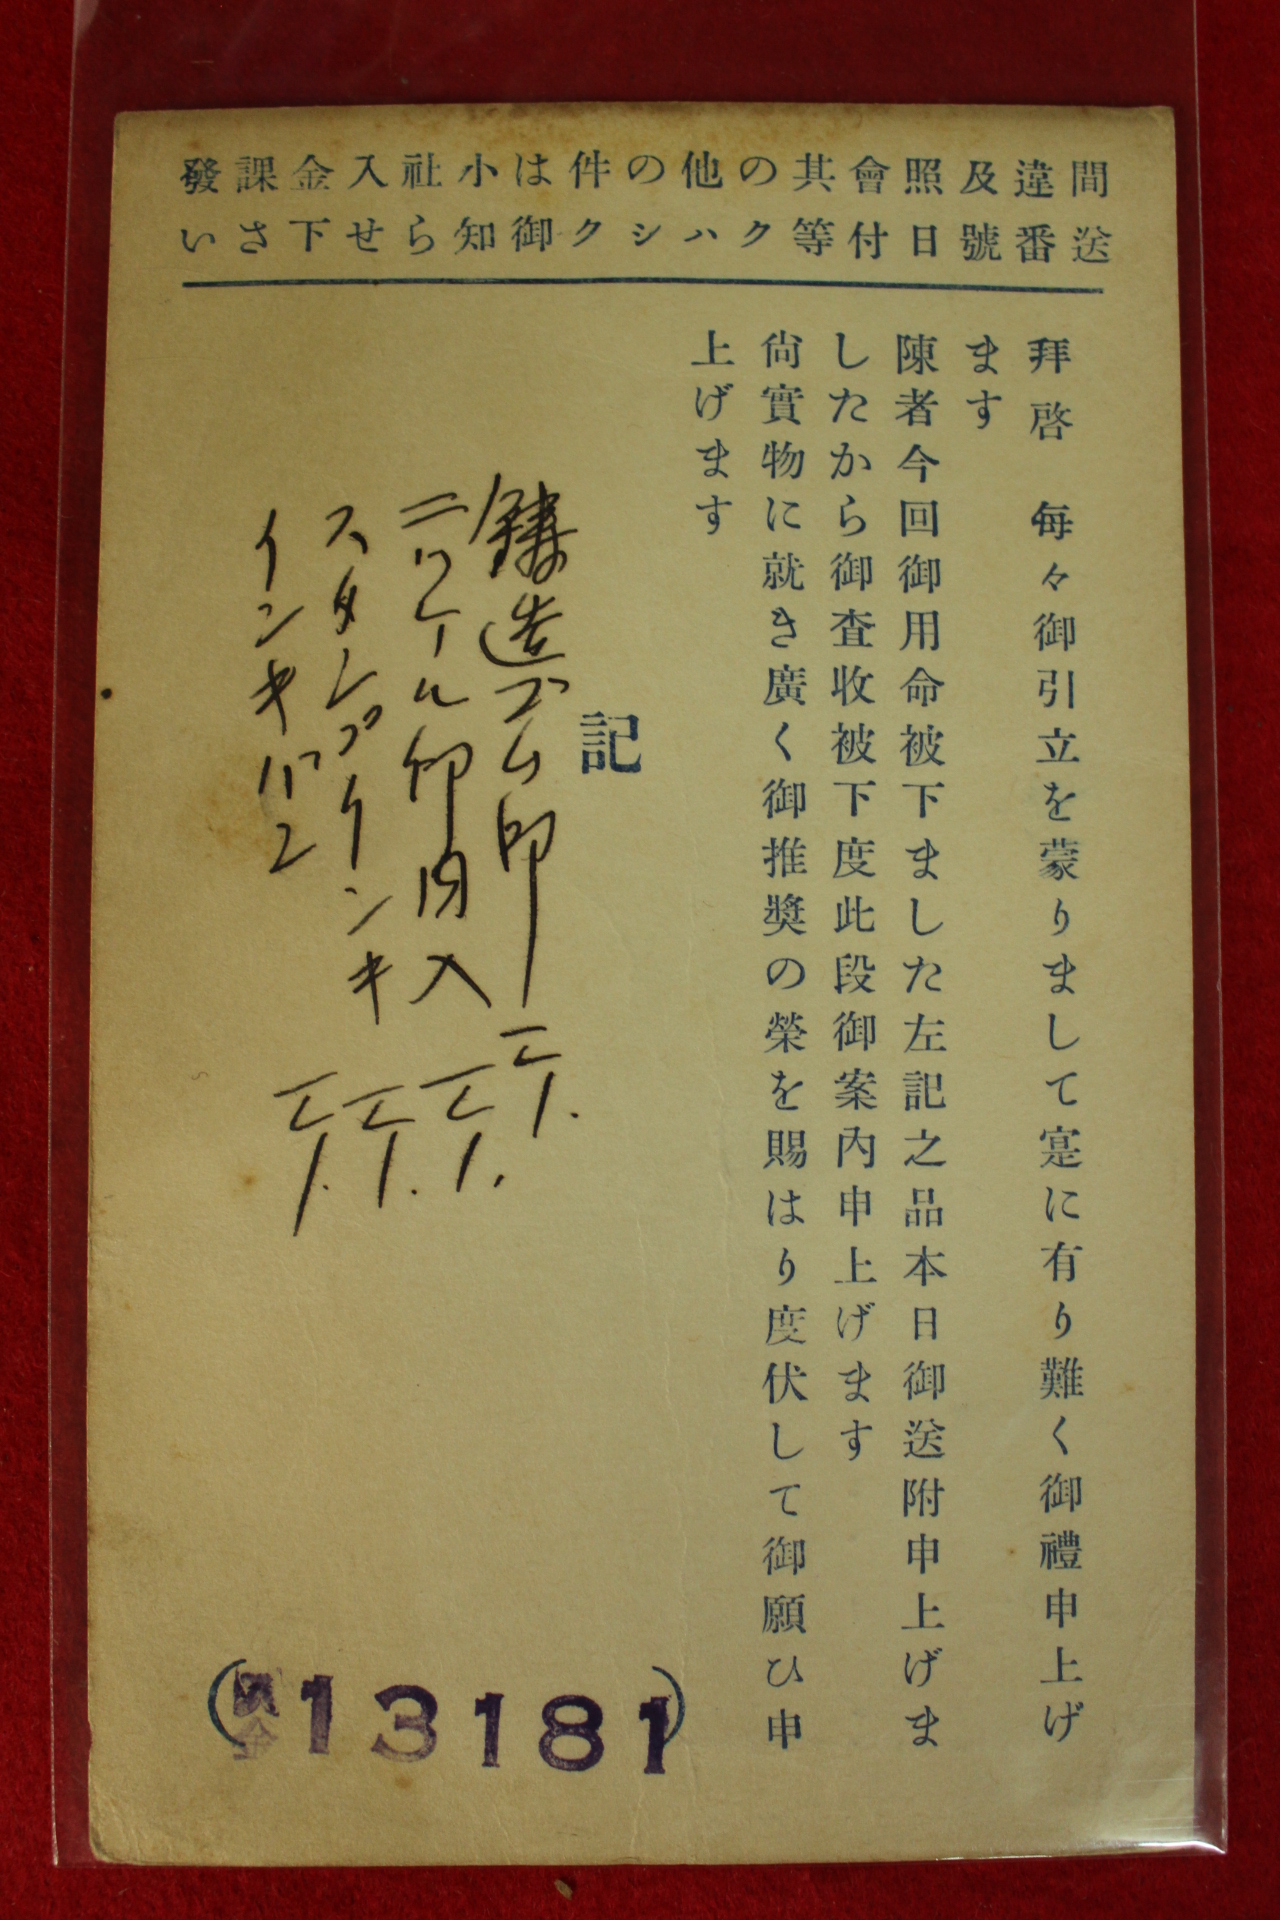 間違及照會其の他の件は小社入金課發
送番號日付等クハシク御知らせ下さい
拜啓　每々御引立を蒙りまして寔に有り難く御禮申上げ
ます
陳者今回御用命被下ました左記之品本日御送附申上げま
したから御査收被下度此段御案內申上げます
尙實物に就き廣く御推奬の榮を賜はり度伏して御願ひ申
上げます
記
鑄造ゴム印 一ケ.
ニッケル印肉入 一ケ.
スタンプインキ 一ケ.
インキバン 一ケ.
(13181)